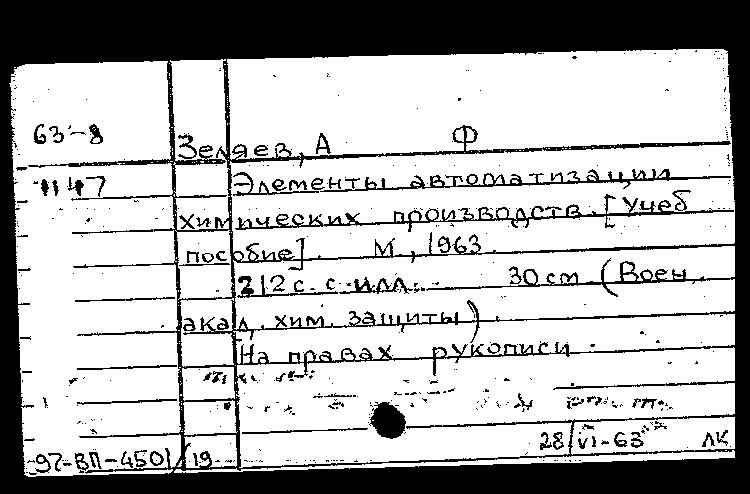 63-8 Зеляев, А Ф
1147 Элементы автоматизации
химических производств. [Учеб
пособие]. М, 1963.
212 с. с илл. 30 см (Воен.
акад. хим. защиты).
На правах рукописи.
28/VI-63 ЛК
97-ВП-4501/19